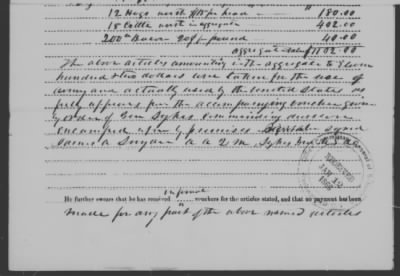 12 Hogs worth $15 per head " 180.00
18 Cattle worth in aggregate 402.00
200 lbs Bacon 20¢ per pound 40.00
aggregate 1102.00
The above articles amounting in the aggregate to Eleven
hundred & two dollars were taken for the use of
army and actually used by the United States as
fully appears from the accompanying voucher given
by order of Gen Sykes commanding division
encamped upon my premises signed
James A Snyder A A Q M Sykes
informal
He further swears that he has received ^ vouchers for the articles stated, and that no payment has been
made for any part of the above named articles
RECEIVED
JAN